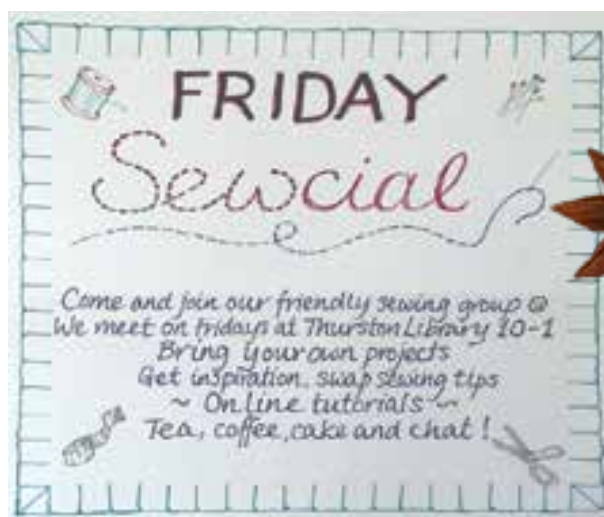 FRIDAY
Sewcial
Come and join our friendly sewing group ☺
We meet on fridays at Thurston Library 10-1
Bring your own projects
Get inspiration, swap sewing tips
~ Online tutorials ~
Tea, coffee, cake and chat!